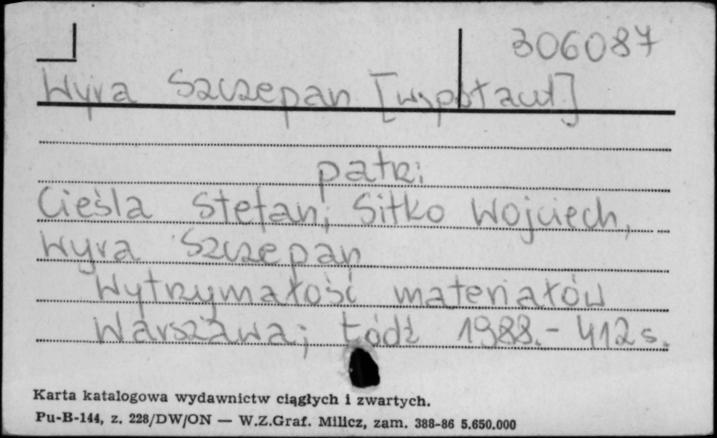 306087
Wyra Szczepan [współaut]
patrz:
Cieśla Stefan, Sitko Wojciech,
Wyra Szczepan
Wytrzymałość materiałów
Warszawa; Łódź 1988.- 412 s.
Karta katalogowa wydawnictw ciągłych i zwartych.
Pu-B-144, z. 228/DW/ON — W.Z.Graf. Milicz, zam. 388-86 5.650.000